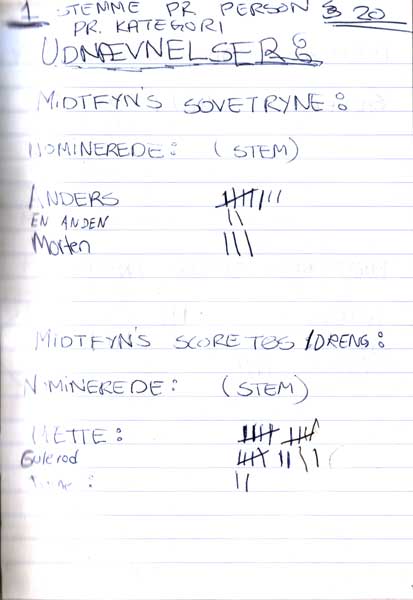 1 STEMME PR PERSON 20
PR. KATEGORI
UDNÆVNELSER:
MIDTFYN'S SOVETRYNE:
NOMINEREDE: (STEM)
ANDERS
EN ANDEN
Morten
MIDTFYN'S SCORETØS/DRENG:
NOMINEREDE: (STEM)
METTE:
Gulerod